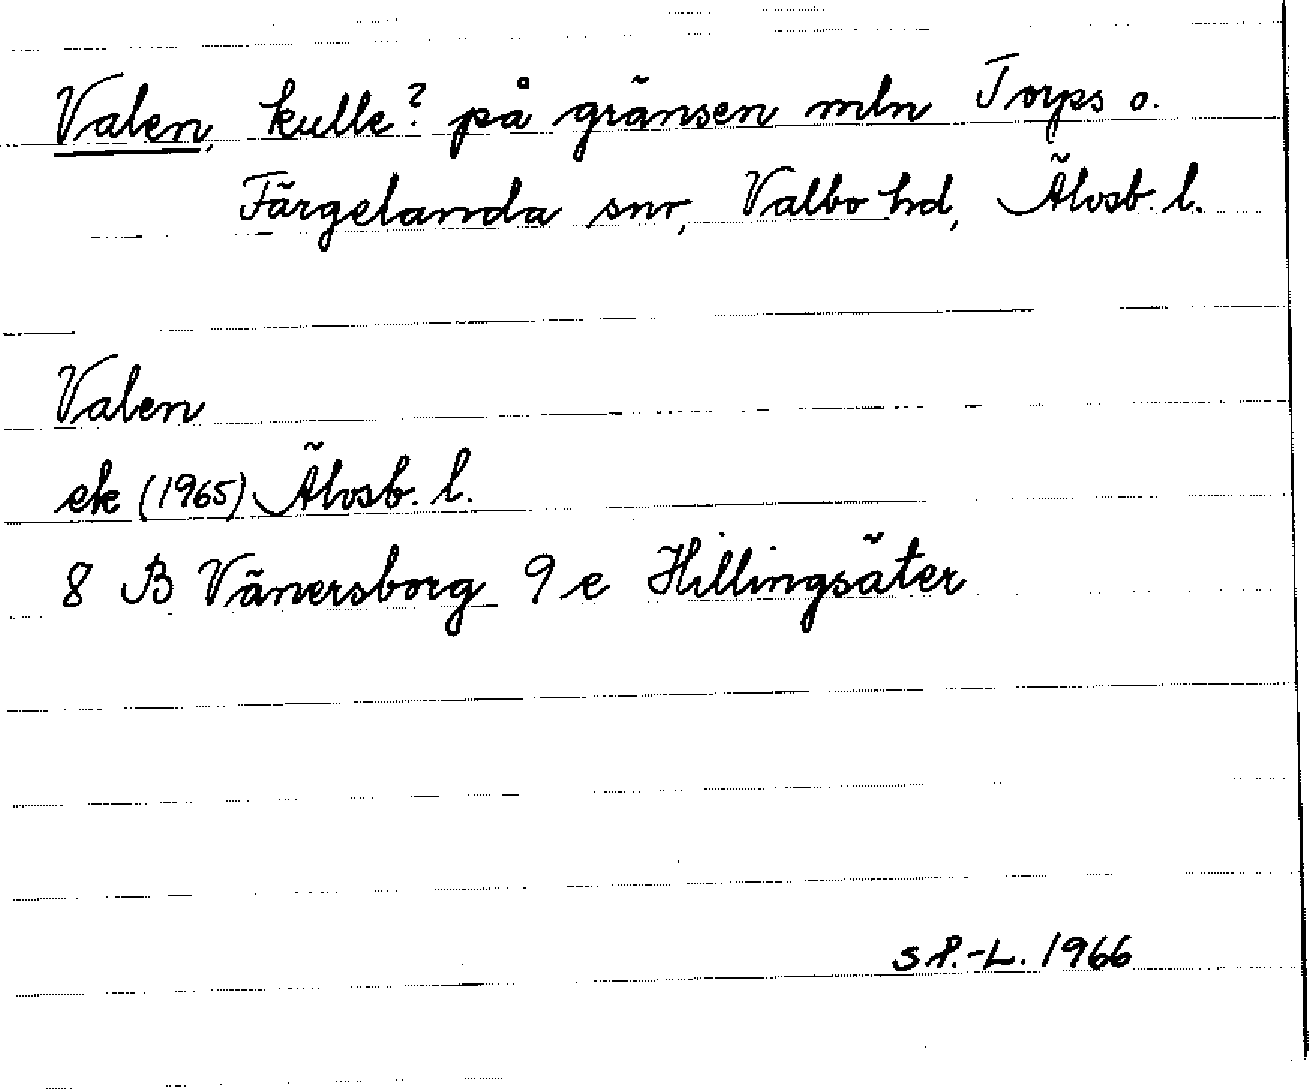 Valen, kulle? på gränsen mln Torps o.
Färgelanda snr, Valbo hd, Älvsb. l.
Valen
ek (1965) Älvsb. l.
8 B Vänersborg 9 e Hillingsäter
S P.-L. 1966